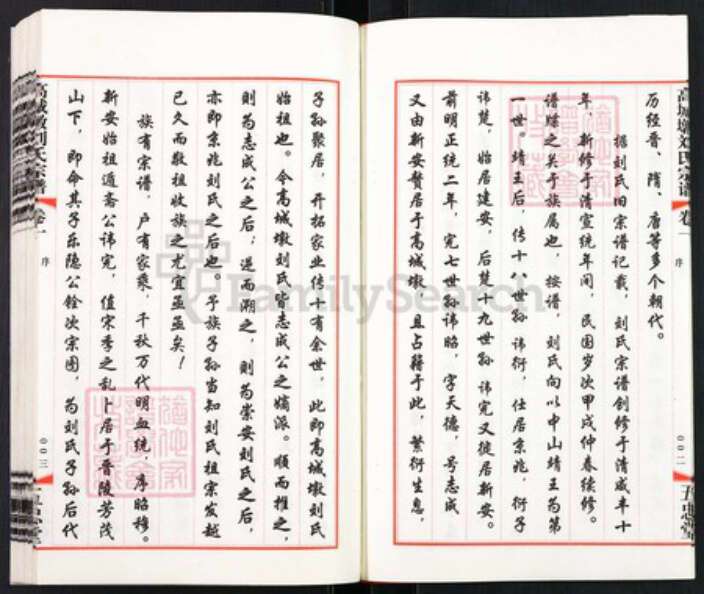 高城墩刘氏宗谱 卷一 序
历经晋、隋、唐等多个朝代。
据刘氏旧宗谱记载,刘氏宗谱创修于清咸丰十
年,新修于清宣统年间,民国岁次甲戌仲春续修。
谱牒之关于族属也,按谱,刘氏向以中山靖王为第
一世。靖王后,传十八世孙讳衍,仕居京兆,衍子
讳楚,始居建安,后楚十九世孙讳宽又徙居新安。
前明正统二年,宽七世孙讳昭,字天德,号志成
又由新安赘居于高城墩,且占籍于此,繁衍生息,
〇〇二
五忠堂
子孙聚居,开拓家业传十有余世,此即高城墩刘氏
始祖也。今高城墩刘氏皆志成公之嫡派。顺而推之,
则为志成公之后;逆而溯之,则为崇安刘氏之后,
亦即京兆刘氏之后也。予族子孙当知刘氏祖宗发越
已久而敬祖收族之尤宜亟亟矣!
族有宗谱,户有家乘,千秋万代明血统,序昭穆。
新安始祖遁斋公讳宽,值宋季之乱卜居于晋陵芳茂
山下,即命其子东隐公铨次宗图,为刘氏子孙后代
高城墩刘氏宗谱 卷一 序
〇〇三
五忠堂
FamilySearch